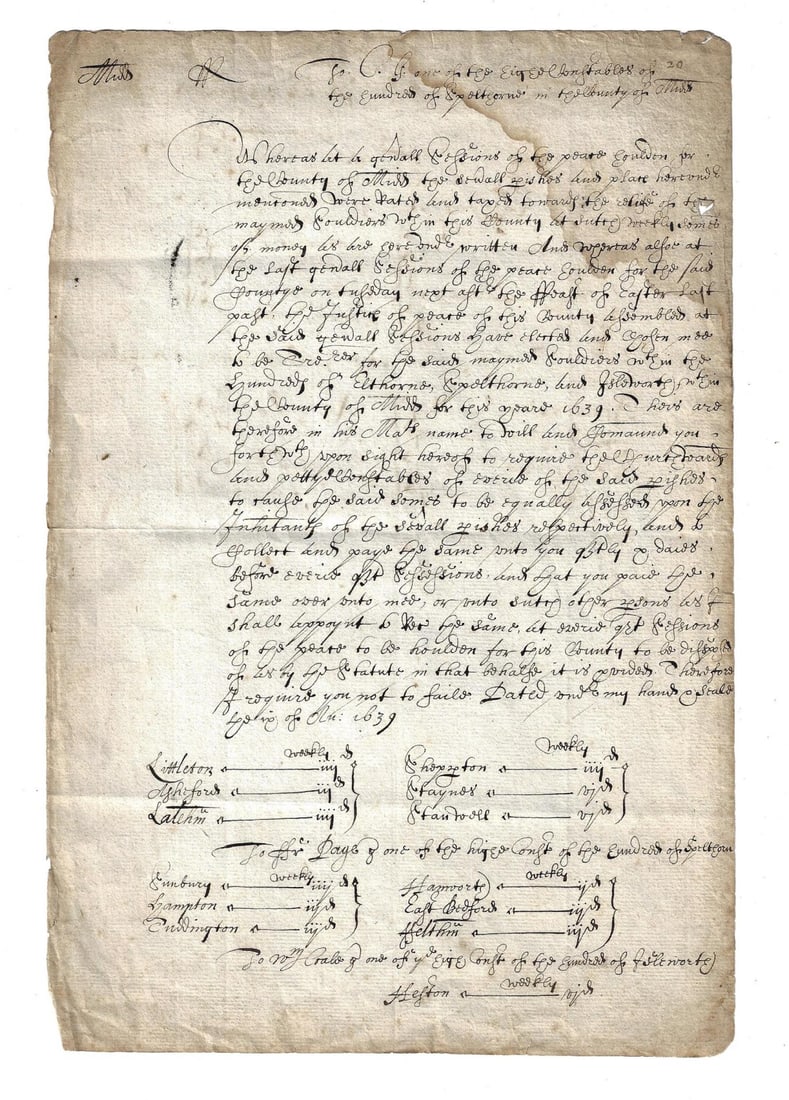 Midd ss To C. H one of the highe Constables of 20
the hundred of Spelthorne in the County of Midd
Whereas at a genall Sessions of the peace houlden for
the County of Midd the sevall pishes and place hereundr
mencioned were Rated and taxed towards the reliefe of the
maymed Souldiers wthin this County at such weekly somes
of money as are hereundr written And whereas alsoe at
the last genall Sessions of the peace houlden for the said
Countye on tuesday next aftr the ffeast of Easter last
past, the Justices of peace of this County assembled at
the said genall Sessions have elected and Chosen mee
to be Trer for the said maymed Souldiers wthin the
Hundreds of Elthorne, Spelthorne, and Isleworth, wthin
the County of Midd for this yeare 1639. Theis are
therefore in his Mats name to will and Comaund you
forthwth upon sight hereof to require the Churchwards
and pettye Constables of everie of the said pishes
to cause the said somes to be equally assessed upon the
Inhitants of the sevall pishes respectively, and to
Collect and paye the same unto you qrtly x daies
before everie qrt Sessessions, and that you paie the
same over unto mee, or unto such other psons as I
shall appoynt to Rec the same, at everie qrt Sessions
of the peace to be houlden for this County to be disposed
of as by the Statute in that behalfe it is pvided. Thereof
I require you not to faile Dated undr my hand & Seale
the ix of Au: 1639
weekly weekly
Littleton iiij d Sheppton iiij d
Asheford iij d Staynes vj d
Lalehm iiij d Stanwell vj d
To ffr Page one of the highe Const of the hundred of Spelthorn
weekly weekly
Sunbury iiij d Hanworth ij d
Hampton iij d East Bedford ij d
Tuddington iij d Felthm iij d
To Wm one of ye high Const of the hundred of Isleworth
weekly
Heston vj d